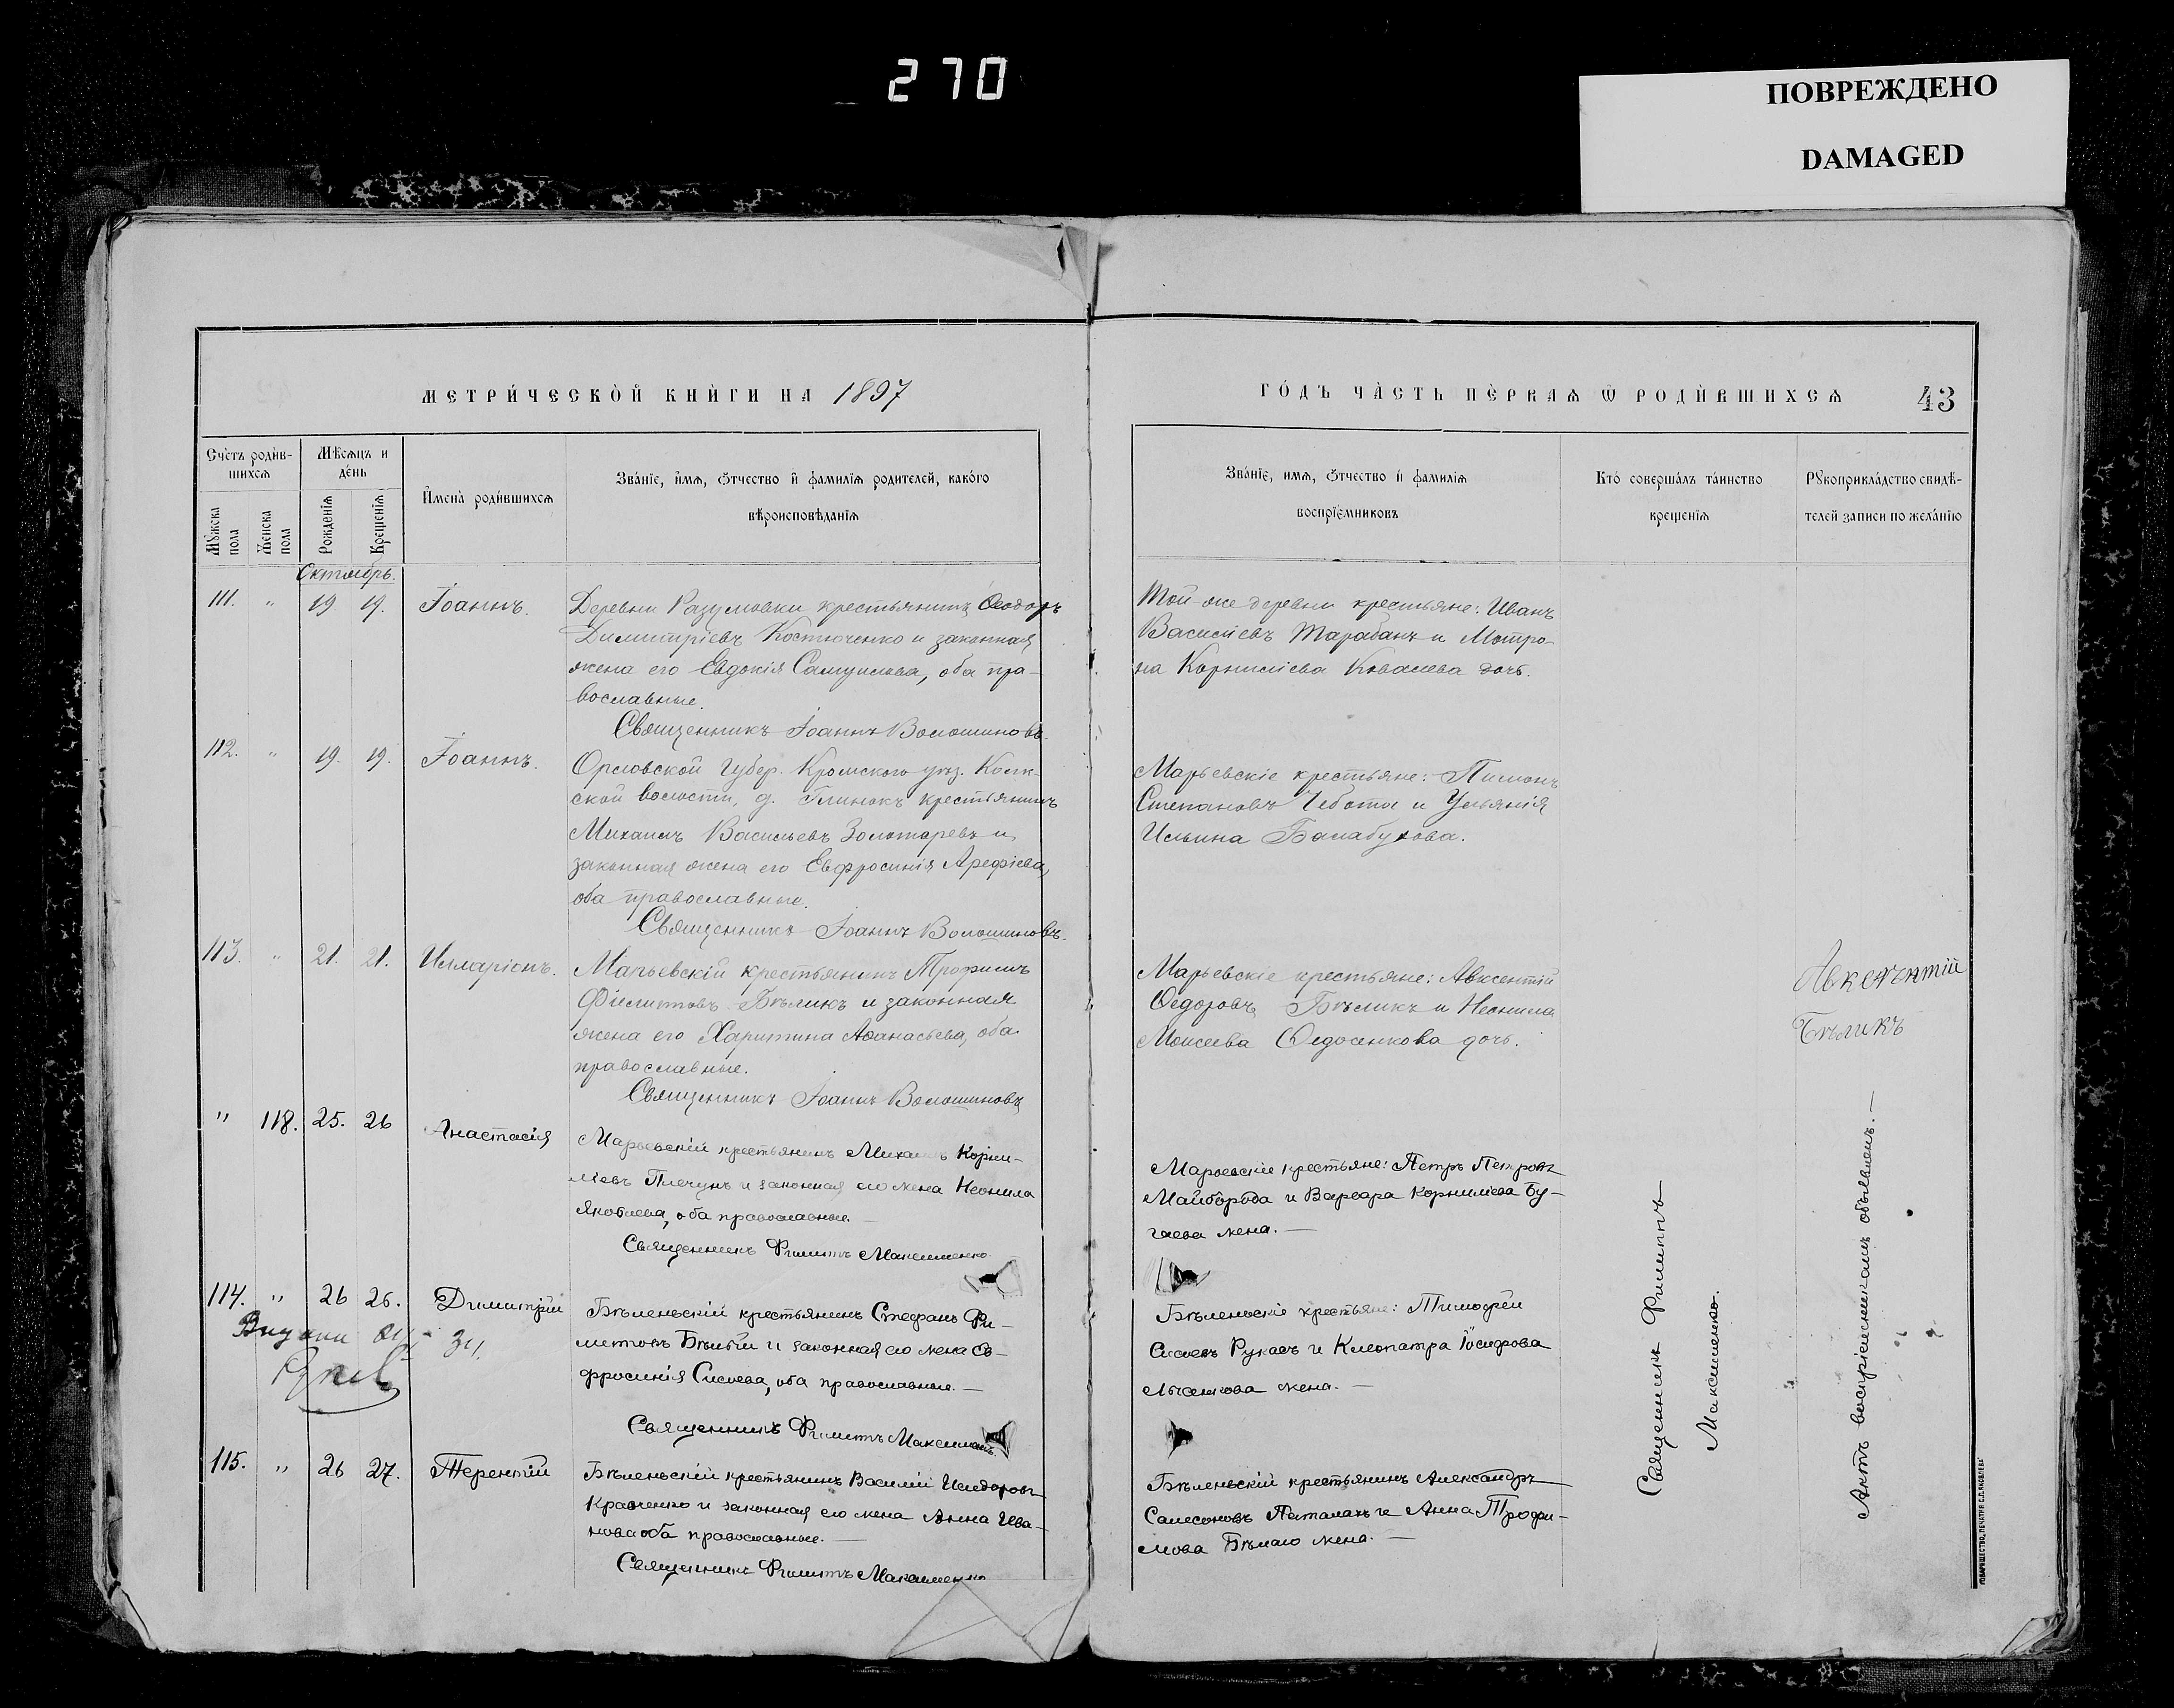 270
ПОВРЕЖДЕНО
DAMAGED
МЕТРИ́ЧЕСКОЙ КНИ́ГИ НА 1897
ГО́ДЪ ЧА́СТЬ ПЕ́РВАѦ Ѡ РОДИ́ВШИХСѦ
43
Сче́тъ роди́в-
шихсѧ
Мѣ́сѧцъ и
де́нь
Мꙋжска
пола
Женска
пола
Рожденіѧ
Крещеніѧ
И҆мена̀ роди́вшихсѧ
Зва́нїе, и҆́мѧ, ѻ҆́тчество и҆ фамилїѧ родителей, како́гѡ
вѣроисповѣ́данїѧ
Зва́нїе, имѧ, ѻ҆́тчество и҆ фамилїѧ
воспрїе́мниковъ
Кто̀ соверша́лъ та́инство
крещенїѧ
Рꙋкоприкла́дство свидѣ́-
телей записи по жела́нїю
Октябрь.
111. " 19. 19. Іоаннъ.
Деревни Разумовки крестьянинъ Ѳеодоръ
Димитріевъ Костюченко и законная
жена его Евдокія Самуилова, оба пра-
вославные.
Священникъ Іоаннъ Волошиновъ.
Той же деревни крестьяне: Иванъ
Василіевъ Тарабанъ и Мотро-
на Корниліева Ковалева дочь.
112. " 19. 19. Іоаннъ.
Орловской Губер. Кромского уѣз.
ской волости, д. Глинокъ крестьянинъ
Михаилъ Васильевъ Золотаревъ и
законная жена его Евфросинія Арефіева,
оба православные.
Священникъ Іоаннъ Волошиновъ.
Марьевскіе крестьяне: Пимонъ
Степановъ Чебота и Ульянія
Ильина Балабухова.
113. " 21. 21. Илларіонъ.
Марьевскій крестьянинъ Трофимъ
Филиповъ Бѣликъ и законная
жена его Харитина Аѳанасьева, оба
православные.
Священникъ Іоаннъ Волошиновъ
Марьевскіе крестьяне: Авксентій
Ѳедоровъ Бѣликъ и Неонила
Моисеева Ѳедосенкова дочь.
Авксентій
Бѣликъ
" 118. 25. 26 Анастасія
Марьевскій крестьянинъ Михаилъ Корни-
ліевъ Плечунъ и законная его жена Неонила
Яковлева, оба православные. —
Священникъ Филиппъ Максименко.
Марьевскіе крестьяне: Петръ Петровъ
Майборода и Варвара Корниліева Бу-
гаева жена. —
114. " 26 26. Димитрій
Выдана
Бѣленьскій крестьянинъ Стефанъ Фи-
липовъ Бѣлый и законная его жена Ев-
фросинія Сисоева, оба православные. —
Священникъ Филиппъ Максименко.
Бѣленьскіе крестьяне: Тимофей
Сисоевъ Рукасъ и Клеопатра Іосифова
жена. —
115. " 26 27. Терентій
Бѣленьскій крестьянинъ Василій Исидоровъ
Кравченко и законная его жена Анна Ива-
нова оба православные. —
Священникъ Филиппъ Максименко
Бѣленьскій крестьянинъ Александръ
Самсоновъ Паталахъ и Анна Трофи-
мова Бѣлаго жена. —
Священникъ Филиппъ
Максименко.
Актъ воспріемникамъ объявленъ. —
ТОВАРИЩЕСТВО „ПЕЧАТНЯ С.П. ЯКОВЛЕВА“